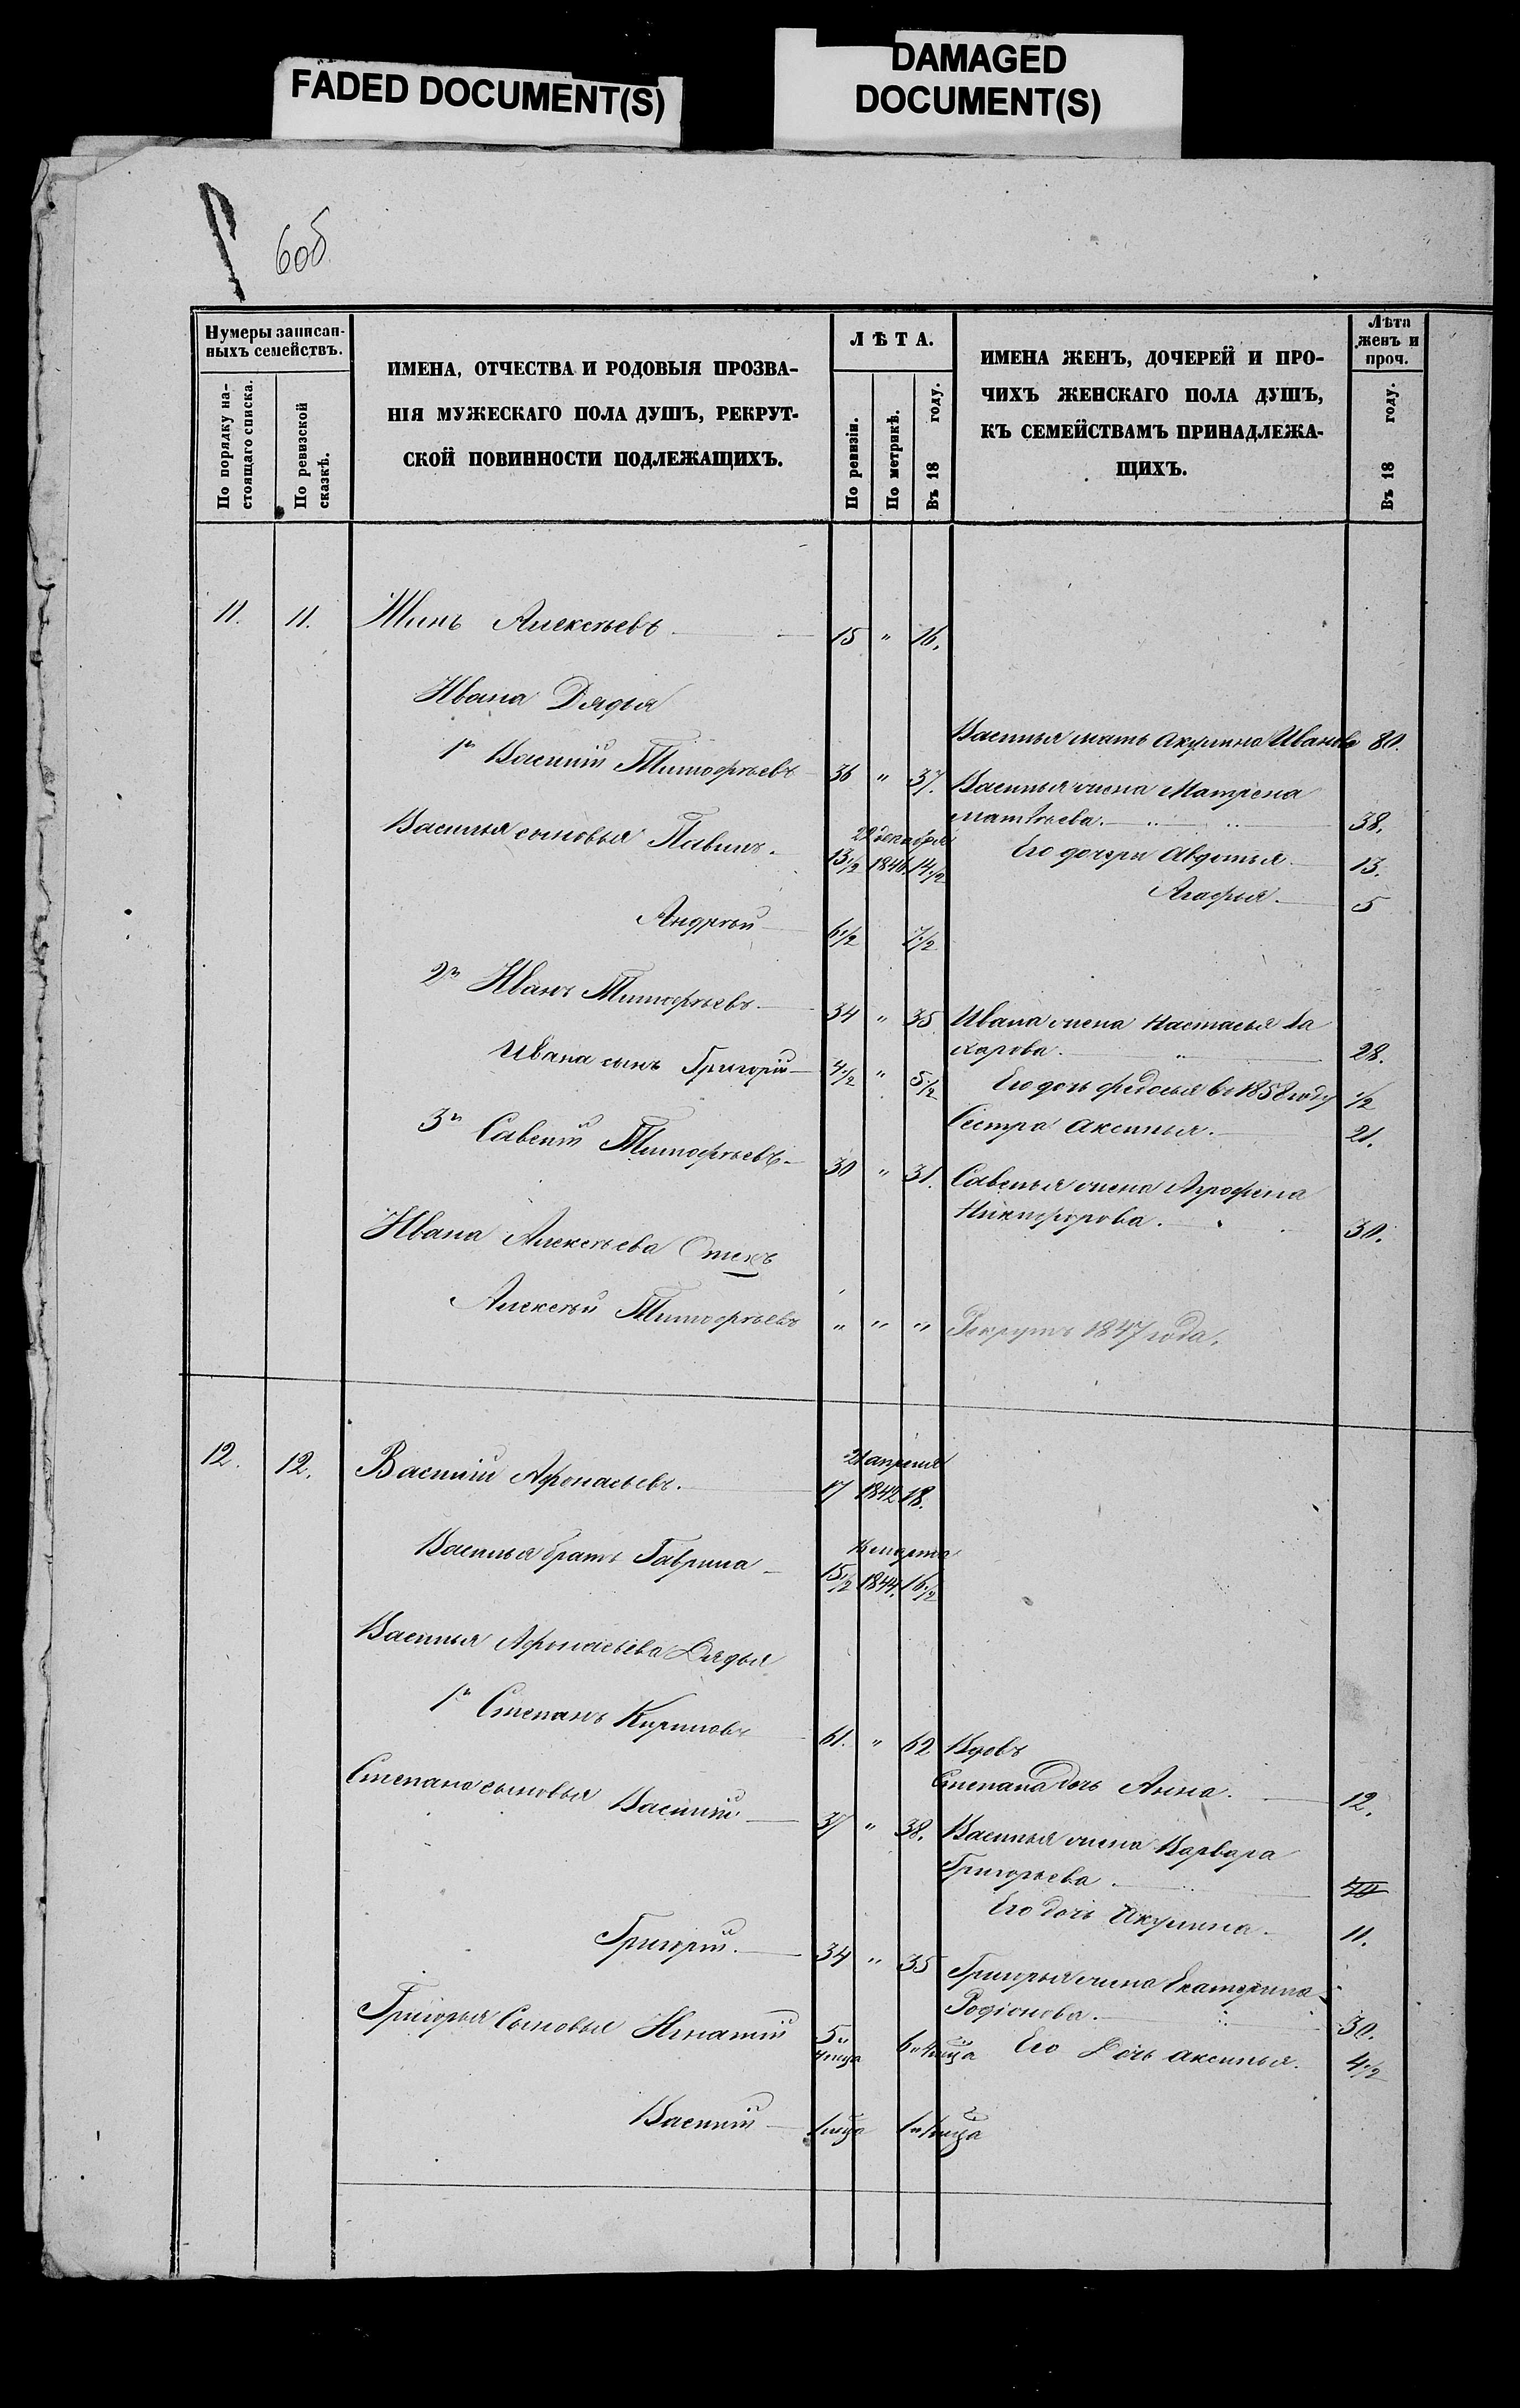 FADED DOCUMENT(S)
DAMAGED
DOCUMENT(S)
60б
Нумеры записан-
ныхъ семействъ.
По порядку на-
стоящаго списка.
По ревизской
сказкѣ.
ИМЕНА, ОТЧЕСТВА И РОДОВЫЯ ПРОЗВА-
НІЯ МУЖЕСКАГО ПОЛА ДУШЪ, РЕКРУТ-
СКОЙ ПОВИННОСТИ ПОДЛЕЖАЩИХЪ.
ЛѢТА.
По ревизіи.
По метрикѣ.
Въ 18 году.
ИМЕНА ЖЕНЪ, ДОЧЕРЕЙ И ПРО-
ЧИХЪ ЖЕНСКАГО ПОЛА ДУШЪ,
КЪ СЕМЕЙСТВАМЪ ПРИНАДЛЕЖА-
ЩИХЪ.
Лѣта
женъ и
проч.
Въ 18 году.
11. 11. Алексѣевъ 15 " 16.
Ивана Дядья
Василья мать Акулина Иванова 80.
1й Василій Тимофѣевъ 36 " 37. Василья жена Матрена
Матвѣева. " " 38.
Василья сыновья Павелъ. 22 декабря
13 1/2 1846 14 1/2 Его дочери Авдотья 13.
Агафья. 5
Андрѣй 6 1/2 7 1/2
2й Иванъ Тимофѣевъ 34 " 35 Ивана жена Настасья За
харова. " 28.
Ивана сынъ Григорій 4 1/2 " 5 1/2 Его дочь Федосья въ 1858 году 1/2
Сестра Аксинья. 21.
3й Савелій Тимофѣевъ 30 " 31. Савелья жена Агрофена
Никифорова. 30.
Ивана Алексѣева Отецъ
Алексѣй Тимофѣевъ " " " Рекрутъ 1847 года.
12. 12. Василій Афонасьевъ. 21 апреля
17 1842 18.
Василья братъ Гаврила марта
15 1/2 1844. 16 1/2
Василья Афонасьева Дядья
1й Степанъ Кириловъ 61. " 62 Вдовъ
Степана дочь Анна. 12.
Степана сыновья Василій 37 " 38. Василья жена Варвара
Григорьева.
Его дочь Акулина. 11.
Григорій. 34 " 35 Григорья жена Екатерина
Родіонова. 30.
Григорья Сыновья Игнатій 5 и 4 мца 6 и 4 мца Его Дочь Аксинья. 4 1/2
Василій 1 мца 1 и 1 мца